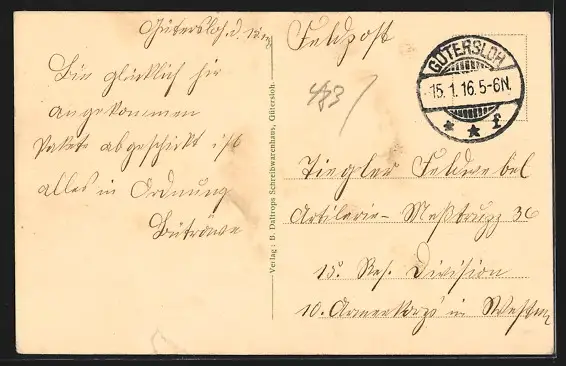 Gütersloh. d. 15.
Bin glücklich hir
angekommen
Pakete abgeschickt ist
alles in Ordnung
Verlag: B. Daltrops Schreibwarenhaus, Gütersloh.
Feldpost
483
GÜTERSLOH
15.1.16.5-6N.
* * f
Ziegler Feldwebel
Artilerie-Meßtrupp 36
15. Res. Division
10. Armeekorps in Westen